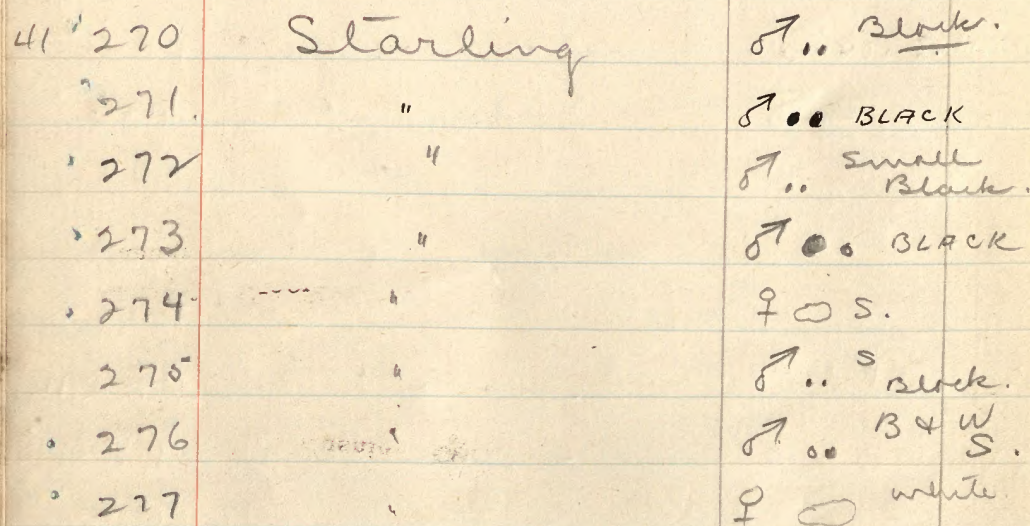 41 270 Starling ♂ .. Black.
271. " ♂ .. BLACK
272 " ♂ .. Small Black.
273 " ♂ .. BLACK
274 " ♀ S.
275 " ♂ .. S Black.
276 " ♂ .. B & W S.
277 " ♀ white